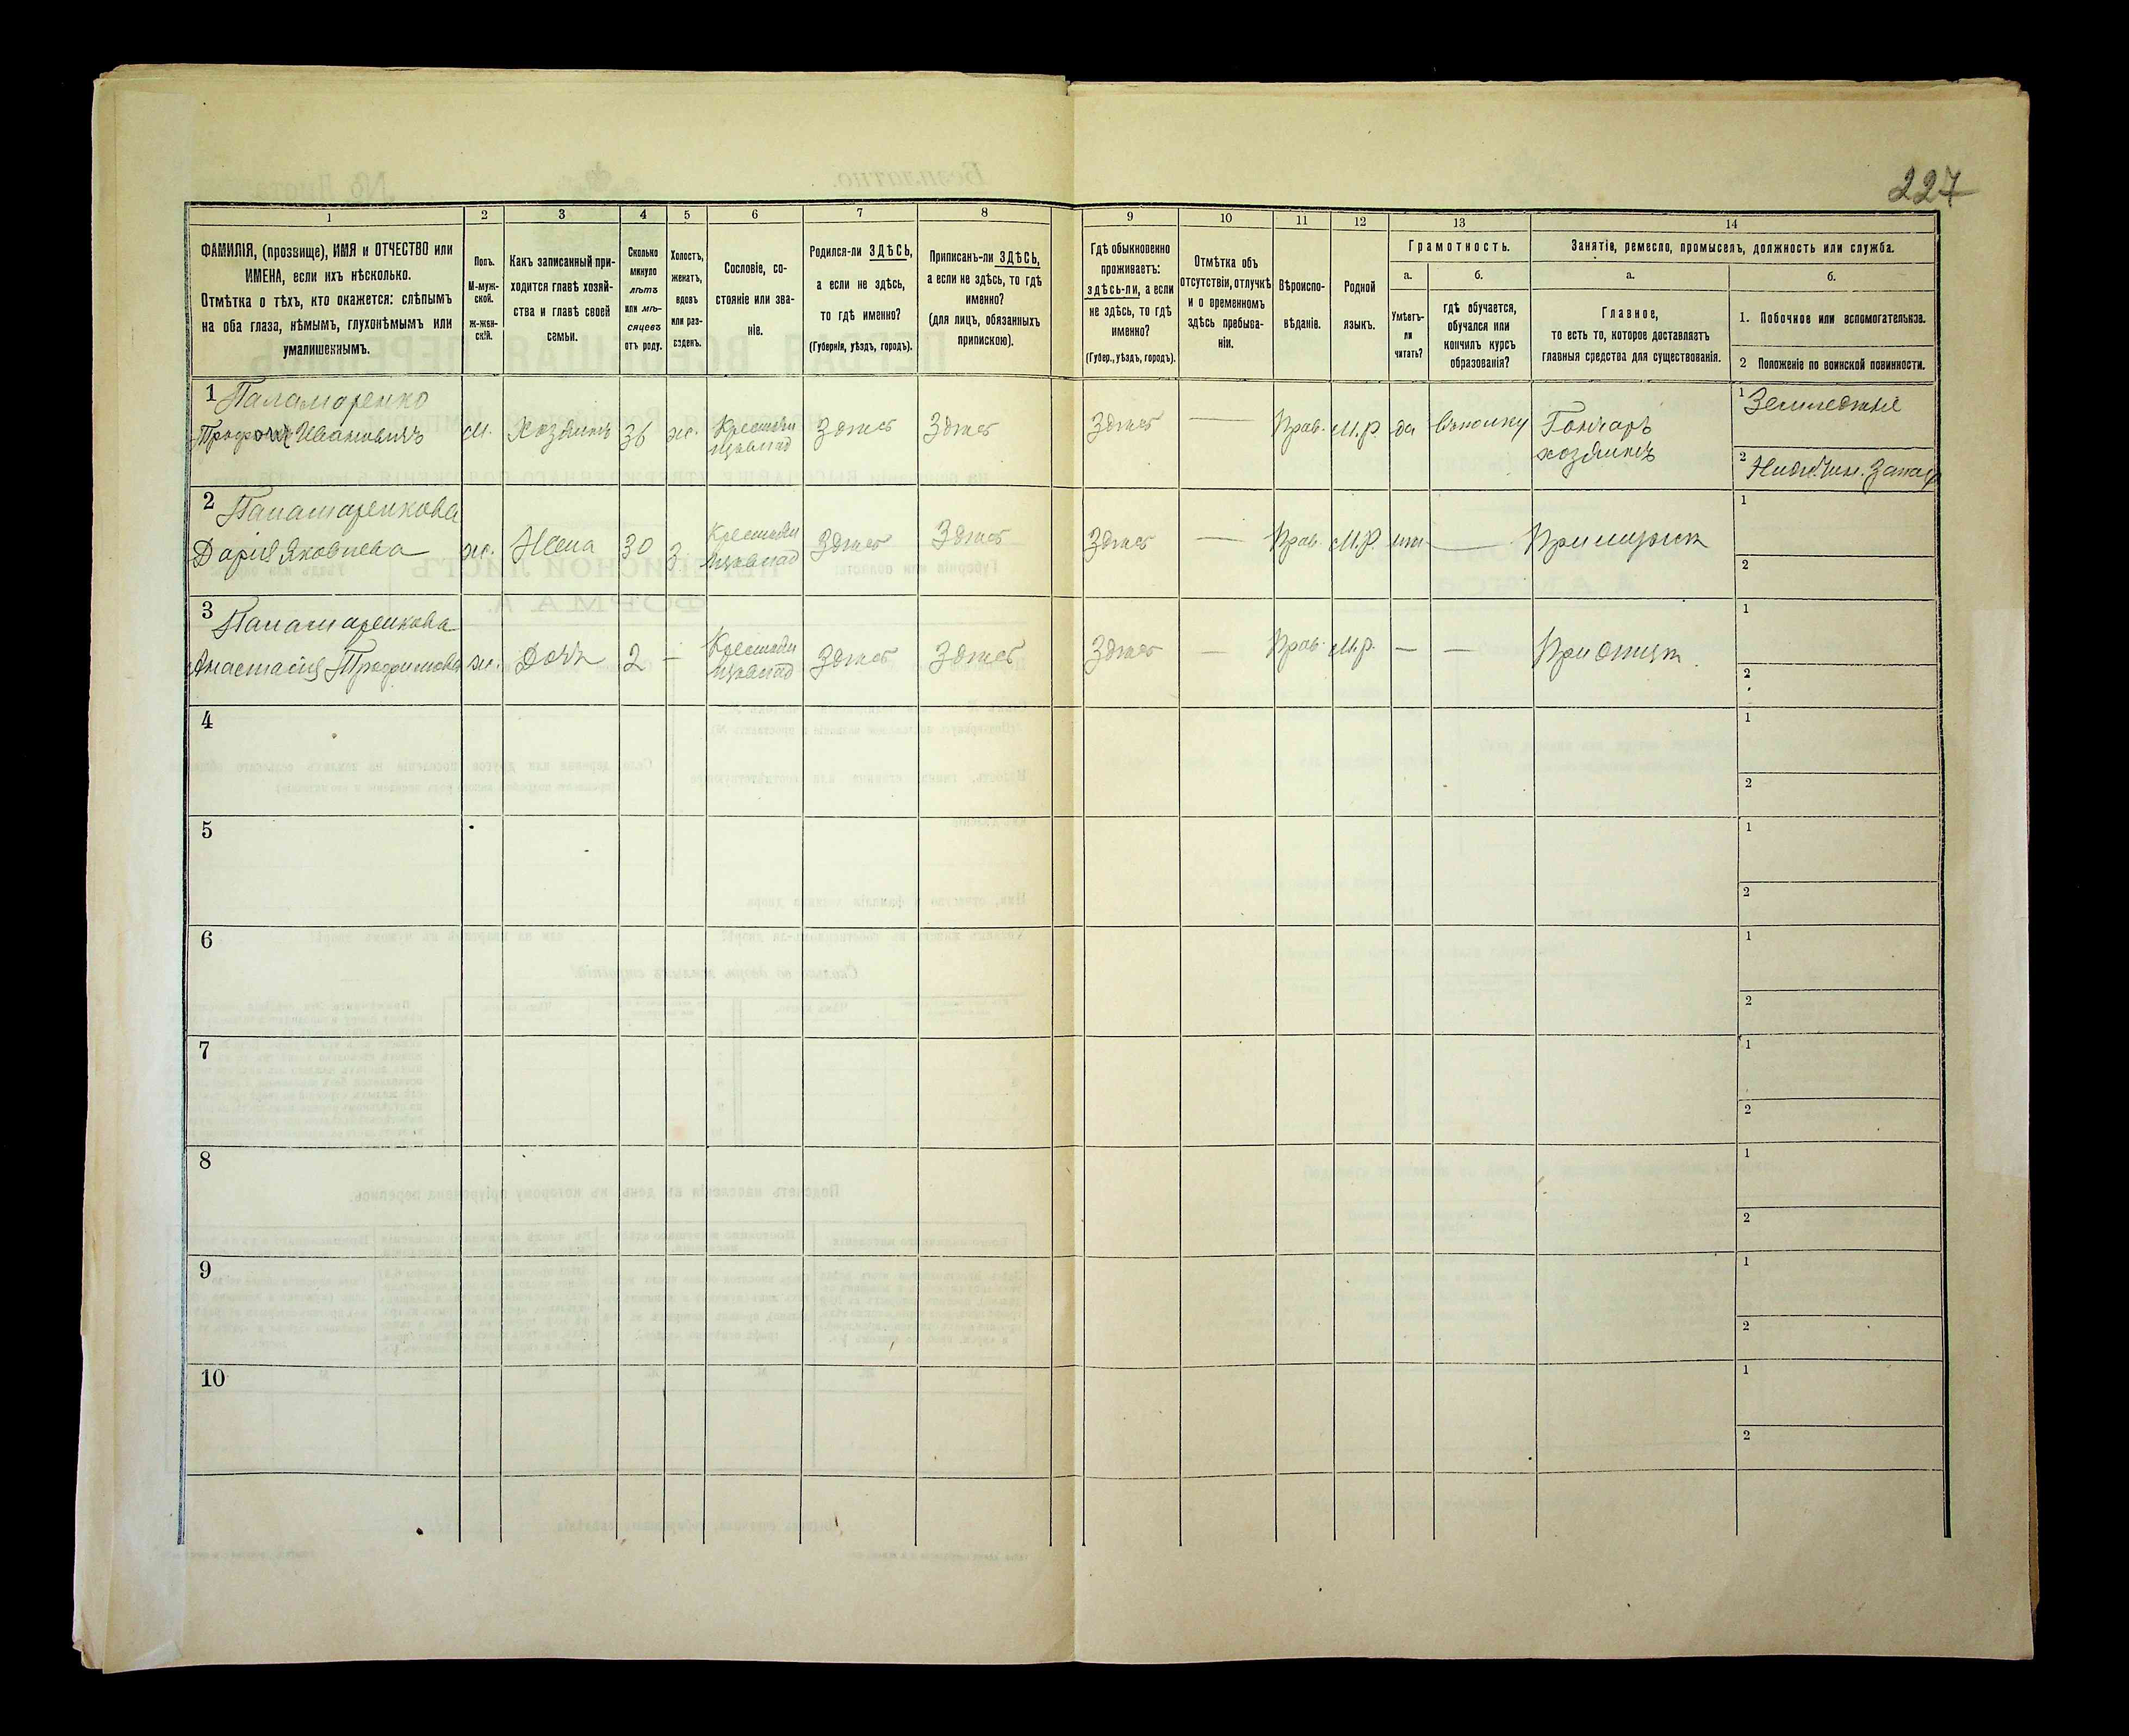 227
1
2
3
4
5
6
7
8
9
10
11
12
13
14
ФАМИЛІЯ, (прозвище), ИМЯ и ОТЧЕСТВО или
ИМЕНА, если ихъ нѣсколько.
Отмѣтка о тѣхъ, кто окажется: слѣпымъ
на оба глаза, нѣмымъ, глухонѣмымъ или
умалишеннымъ.
Полъ.
М-муж-
ской.
ж-жен-
скій.
Какъ записанный при-
ходится главѣ хозяй-
ства и главѣ своей
семьи.
Сколько
минуло
лѣтъ
или мѣ-
сяцевъ
отъ роду.
Холостъ,
женатъ,
вдовъ
или раз-
веденъ.
Сословіе, со-
стояніе или зва-
ніе.
Родился-ли ЗДѢСЬ,
а если не здѣсь,
то гдѣ именно?
(Губернія, уѣздъ, городъ).
Приписанъ-ли ЗДѢСЬ,
а если не здѣсь, то гдѣ
именно?
(для лицъ, обязанныхъ
припискою).
Гдѣ обыкновенно
проживаетъ:
здѣсь-ли, а если
не здѣсь, то гдѣ
именно?
(Губер., уѣздъ, городъ).
Отмѣтка объ
отсутствіи, отлучкѣ
и о временномъ
здѣсь пребыва-
ніи.
Вѣроиспо-
вѣданіе.
Родной
языкъ.
Грамотность.
а.
Умѣетъ-
ли
читать?
б.
гдѣ обучается,
обучался или
кончилъ курсъ
образованія?
Занятіе, ремесло, промыселъ, должность или служба.
а.
Главное,
то есть то, которое доставляетъ
главныя средства для существованія.
б.
1. Побочное или вспомогательное.
2 Положеніе по воинской повинности.
1 Паламаренко
Трофимъ Ивановичъ м. хозяинъ 36 ж. Крестьян здѣсь здѣсь здѣсь — Прав. М.р. да Гончаръ
хозяинъ
1 Земледѣліе
2
2 Паламаренкова
Дарія Яковлева ж. Жена 30 З Крестьян здѣсь здѣсь здѣсь — Прав. М.р. нѣт — При мужѣ
1
2
3 Паламаренкова
Анастасія Трофимова ж. Дочь 2 — Крестьян здѣсь здѣсь здѣсь — Прав. М.р. — — При отцѣ.
1
2
4
1
2
5
1
2
6
1
2
7
1
2
8
1
2
9
1
2
10
1
2